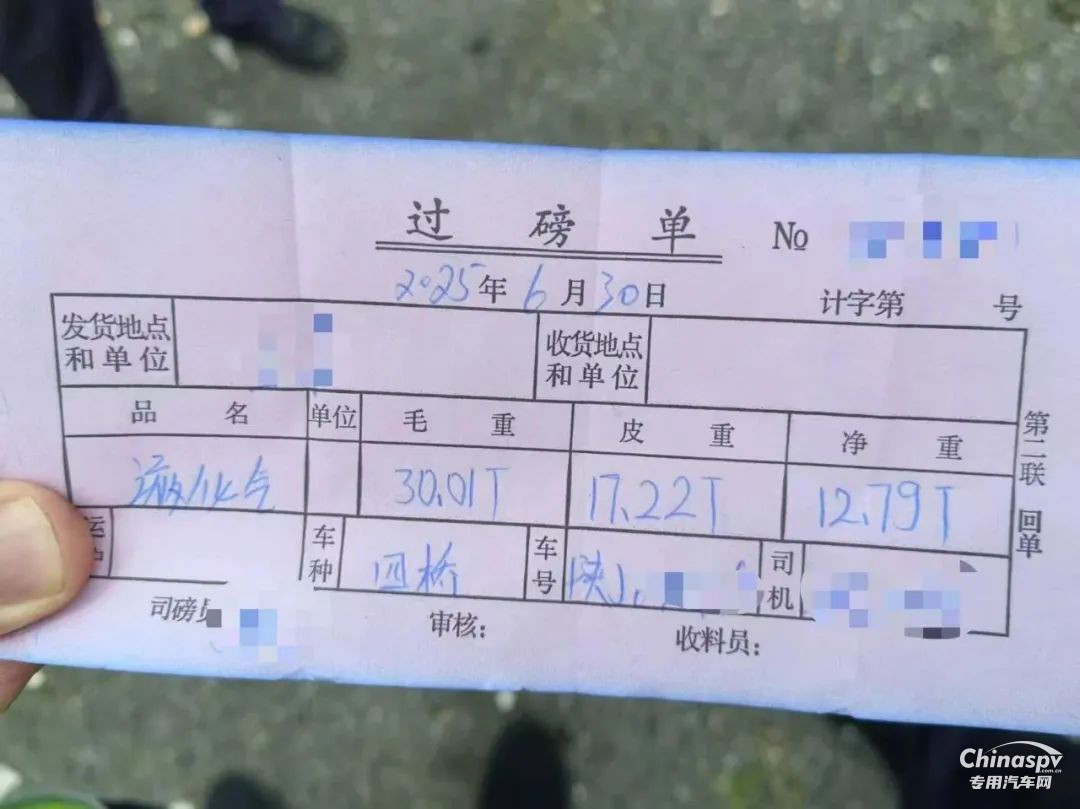 过磅单 №
2025年6月30日 计字第 号
发货地点和单位 收货地点和单位
品名 单位 毛重 皮重 净重
液化气 30.01T 17.22T 12.79T
车种 四桥 车号 陕J. 司机
司磅员 审核： 收料员：
第二联 回单
Chinaspv
.com.cn
专用汽车网